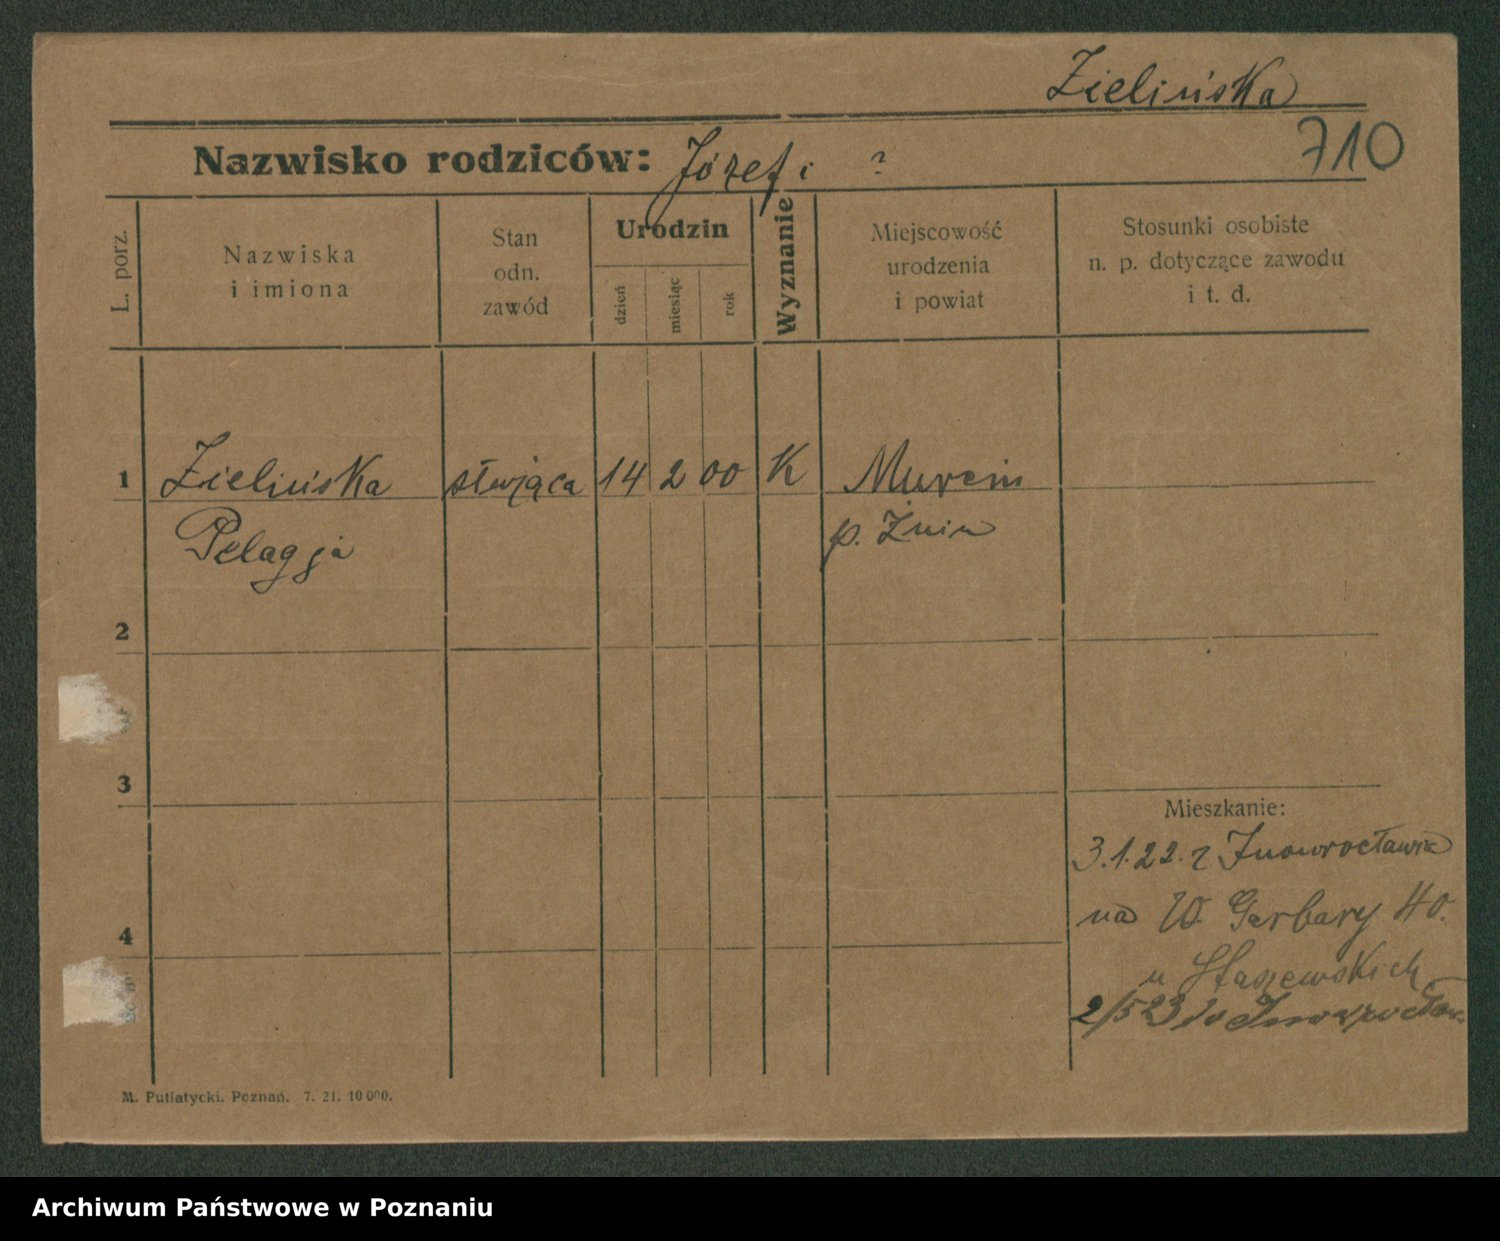 Zielińska
710
Nazwisko rodziców: Józef i ?
L. porz.
Nazwiska
i imiona
Stan
odn.
zawód
Urodzin
dzień
miesiąc
rok
Wyznanie
Miejscowość
urodzenia
i powiat
Stosunki osobiste
n. p. dotyczące zawodu
i t. d.
1 Zielińska służąca 14 2 00 K Murcin
Pelagja p. Żnin
2
3
Mieszkanie:
3.1.22. z Inowrocławia
na W. Garbary 40.
4
u Staszewskich
2/5 23 do Inowrocław
M. Putiatycki. Poznań. 7. 21. 10 000.
Archiwum Państwowe w Poznaniu